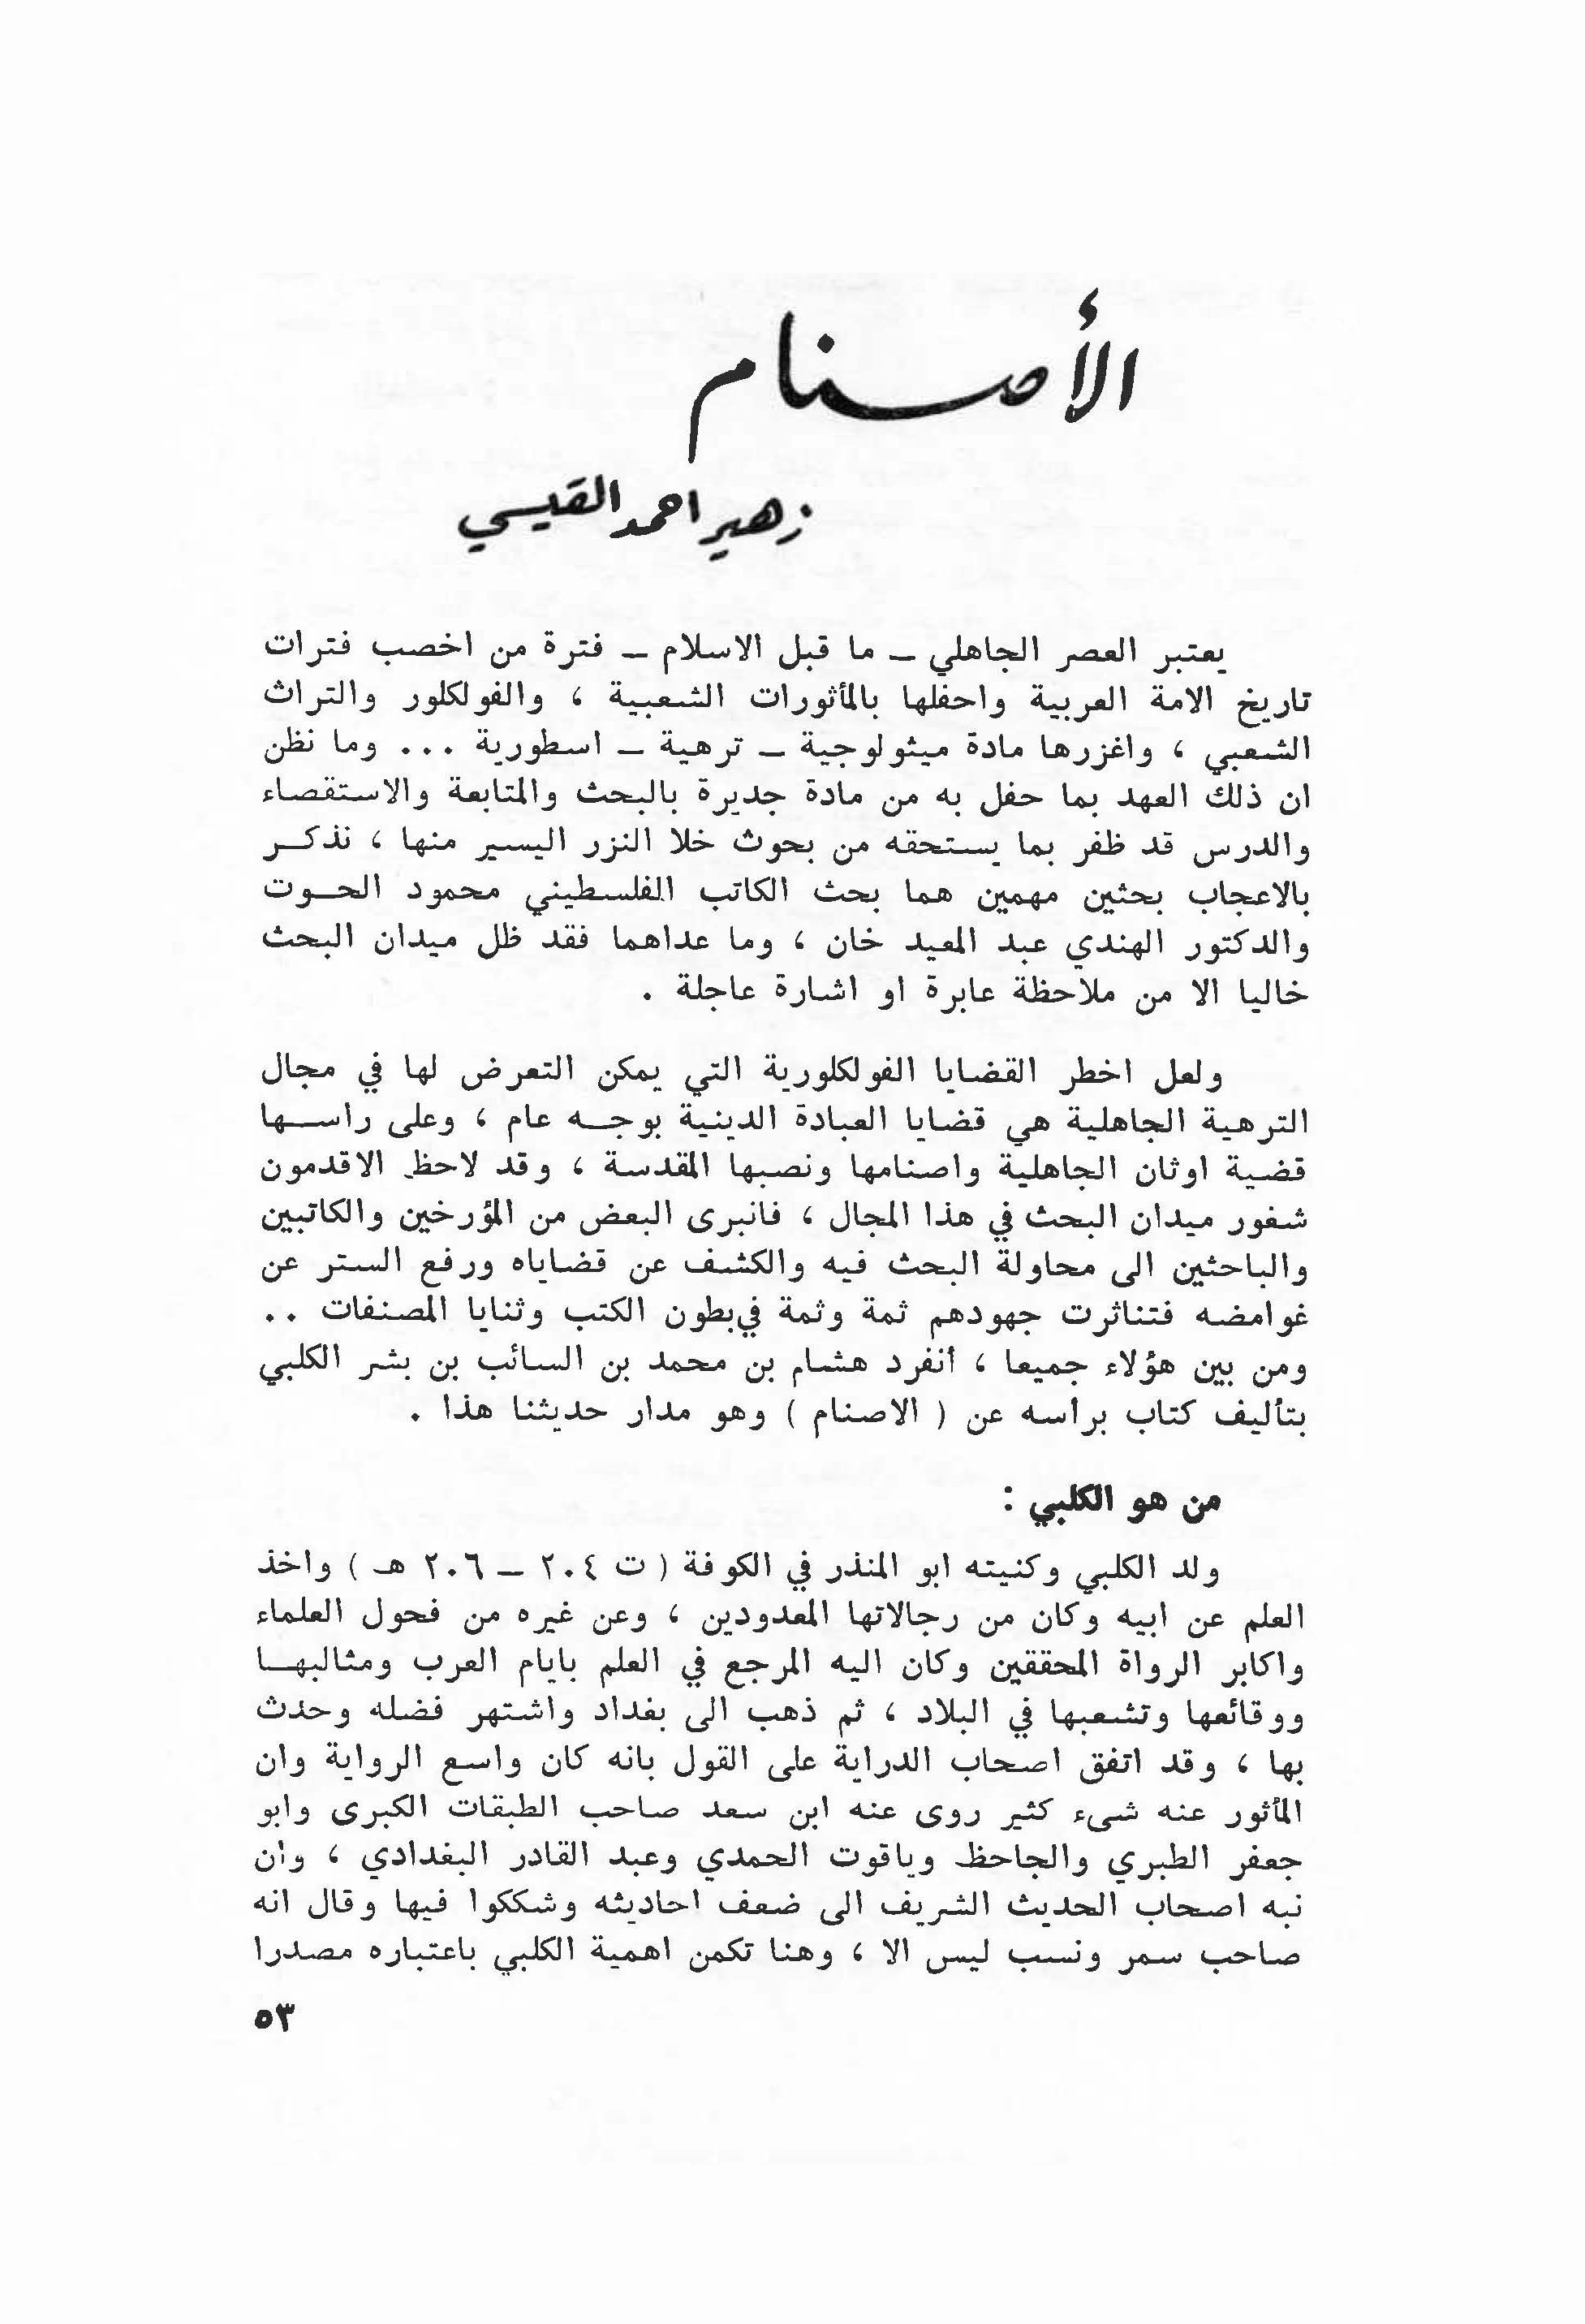 الأصنام
زهير احمد القيسي
يعتبر العصر الجاهلي ــ ما قبل الاسلام ــ فترة من اخصب فترات
تاريخ الامة العربية واحفلها بالمأثورات الشعبية ، والفولكلور والتراث
الشعبي ، واغزرها مادة ميثولوجية ــ ترهية ــ اسطورية ... وما نظن
ان ذلك العهد بما حفل به من مادة جديرة بالبحث والمتابعة والاستقصاء
والدرس قد ظفر بما يستحقه من بحوث خلا النزر اليسير منها ، نذكـر
بالاعجاب بحثين مهمين هما بحث الكاتب الفلسطيني محمود الحـوت
والدكتور الهندي عبد المعيد خان ، وما عداهما فقد ظل ميدان البحث
خاليا الا من ملاحظة عابرة او اشارة عاجلة .
ولعل اخطر القضايا الفولكلورية التي يمكن التعرض لها في مجال
الترهية الجاهلية هي قضايا العبادة الدينية بوجـه عام ، وعلى راسـها
قضية اوثان الجاهلية واصنامها ونصبها المقدسة ، وقد لاحظ الاقدمون
شغور ميدان البحث في هذا المجال ، فانبرى البعض من المؤرخين والكاتبين
والباحثين الى محاولة البحث فيه والكشف عن قضاياه ورفع الستر عن
غوامضه فتناثرت جهودهم ثمة وثمة في بطون الكتب وثنايا المصنفات ..
ومن بين هؤلاء جميعا ، أنفرد هشام بن محمد بن السائب بن بشر الكلبي
بتأليف كتاب برأسه عن ( الاصنام ) وهو مدار حديثنا هذا .
من هو الكلبي :
ولد الكلبي وكنيته ابو المنذر في الكوفة ( ت ٢٠٤ ــ ٢٠٦ هـ ) واخذ
العلم عن ابيه وكان من رجالاتها المعدودين ، وعن غيره من فحول العلماء
واكابر الرواة المحققين وكان اليه المرجع في العلم بايام العرب ومثالبهـا
ووقائعها وتشعبها في البلاد ، ثم ذهب الى بغداد واشتهر فضله وحدث
بها ، وقد اتفق اصحاب الدراية على القول بانه كان واسع الرواية وان
المأثور عنه شىء كثير روى عنه ابن سعد صاحب الطبقات الكبرى وابو
جعفر الطبري والجاحظ وياقوت الحمدي وعبد القادر البغدادي ، وان
نبه اصحاب الحديث الشريف الى ضعف احاديثه وشككوا فيها وقال انه
صاحب سمر ونسب ليس الا ، وهنا تكمن اهمية الكلبي باعتباره مصدرا
٥٣